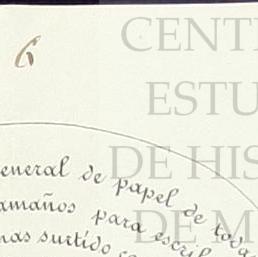 6
CENT
ESTU
DE HIS
DE M
eneral de papel de toda
amaños para escrib
nas surtido